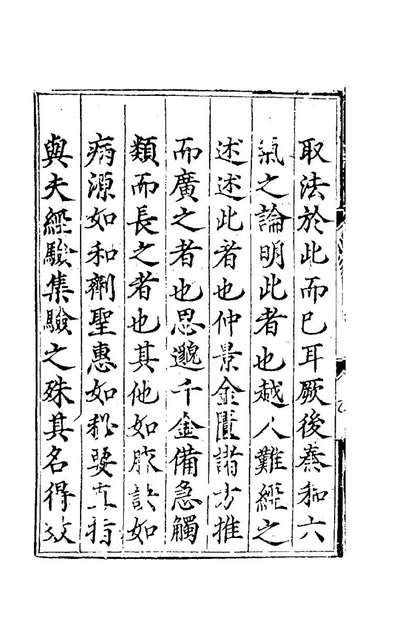 取法於此而已耳厥後秦和六
氣之論明此者也越人難經之
述述此者也仲景金匱諸方推
而廣之者也思邈千金備急觸
類而長之者也其他如脉訣如
病源如和劑聖惠如秘要直指
與夫經驗集驗之殊其名得效